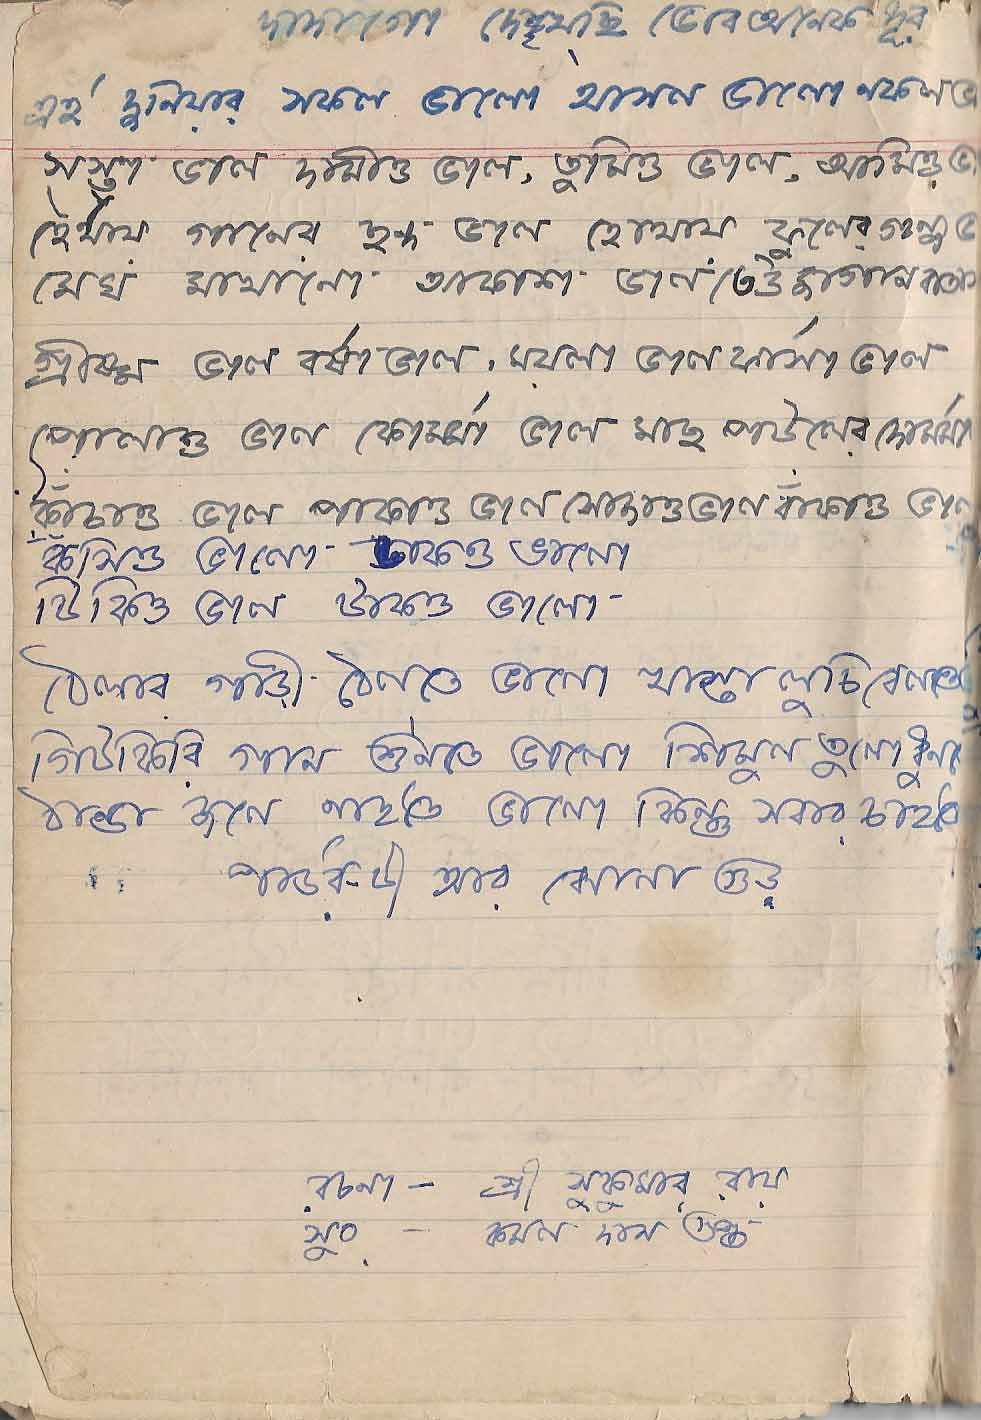 দাদাগো দেখ্‌ছি ভেবে অনেক দূর
এই দুনিয়ার সকল ভালো আসল ভালো নকল ভা
সস্তা ভাল দামীও ভাল, তুমিও ভাল, আমিও ভা
হেথায় গানের ছন্দ ভাল হেথায় ফুলের গন্ধ ভ
মেঘ মাখানো আকাশ ভাল ঢেউ জাগান বাতাস
গ্রীষ্ম ভাল বর্ষা ভাল, ময়লা ভাল ফর্সা ভাল
পোলাও ভাল কোর্মা ভাল মাছ পটোলের দোর্মা
কাঁচাও ভাল পাকাও ভাল সোজাও ভাল বাঁকাও ভাল
কাঁসিও ভালো ঢাকও ভালো
টিকিও ভাল টাকও ভালো
ঠেলার গাড়ী ঠেলতে ভালো খাস্তা লুচি বেলতে
গিটকিরি গান শুনতে ভালো শিমুল তুলো ধুনতে
ঠান্ডা জলে নাইতে ভালো কিন্তু সবার চাইতে
পাউরুটী আর ঝোলা গুড়
রচনা - শ্রী সুকুমার রায়
সুর - কমল দাস গুপ্ত